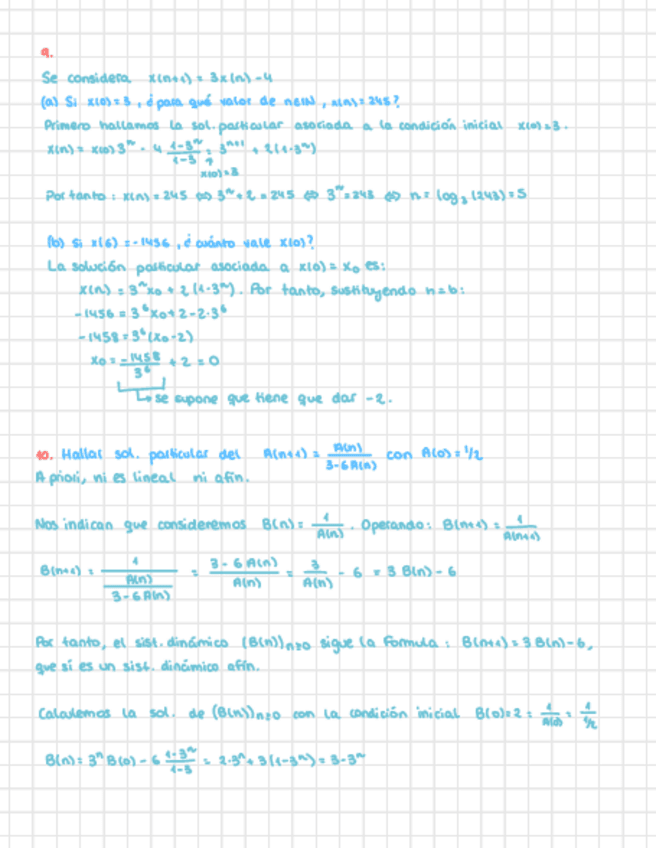 9.
Se considera x(n+1) = 3x(n) - 4
(a) Si x(0)=3, ¿para qué valor de n∈ℕ, x(n)=245?
Primero hallamos la sol. particular asociada a la condición inicial x(0)=3.
x(n) = x(0) 3^n - 4 (1-3^n)/(1-3) = 3^(n+1) + 2(1-3^n)
x(0)=3
Por tanto: x(n) = 245 ⇔ 3^n + 2 = 245 ⇔ 3^n = 243 ⇔ n = log_3 (243) = 5
(b) Si x(6) = -1456, ¿cuánto vale x(0)?
La solución particular asociada a x(0) = x_0 es:
x(n) = 3^n x_0 + 2(1-3^n). Por tanto, sustituyendo n=6:
-1456 = 3^6 x_0 + 2 - 2·3^6
-1458 = 3^6 (x_0 - 2)
x_0 = -1458/3^6 + 2 = 0
se supone que tiene que dar -2.
10. Hallar sol. particular del A(n+1) = A(n)/(3-6A(n)) con A(0) = 1/2
A priori, ni es lineal ni afín.
Nos indican que consideremos B(n) = 1/A(n). Operando: B(n+1) = 1/A(n+1)
B(n+1) = 1/(A(n)/(3-6A(n))) = (3-6A(n))/A(n) = 3/A(n) - 6 = 3 B(n) - 6
Por tanto, el sist. dinámico (B(n))n≥0 sigue la fórmula: B(n+1) = 3B(n) - 6,
que sí es un sist. dinámico afín.
Calculemos la sol. de (B(n))n≥0 con la condición inicial B(0)=2 = 1/A(0) = 1/(1/2)
B(n) = 3^n B(0) - 6 (1-3^n)/(1-3) = 2·3^n + 3(1-3^n) = 3 - 3^n